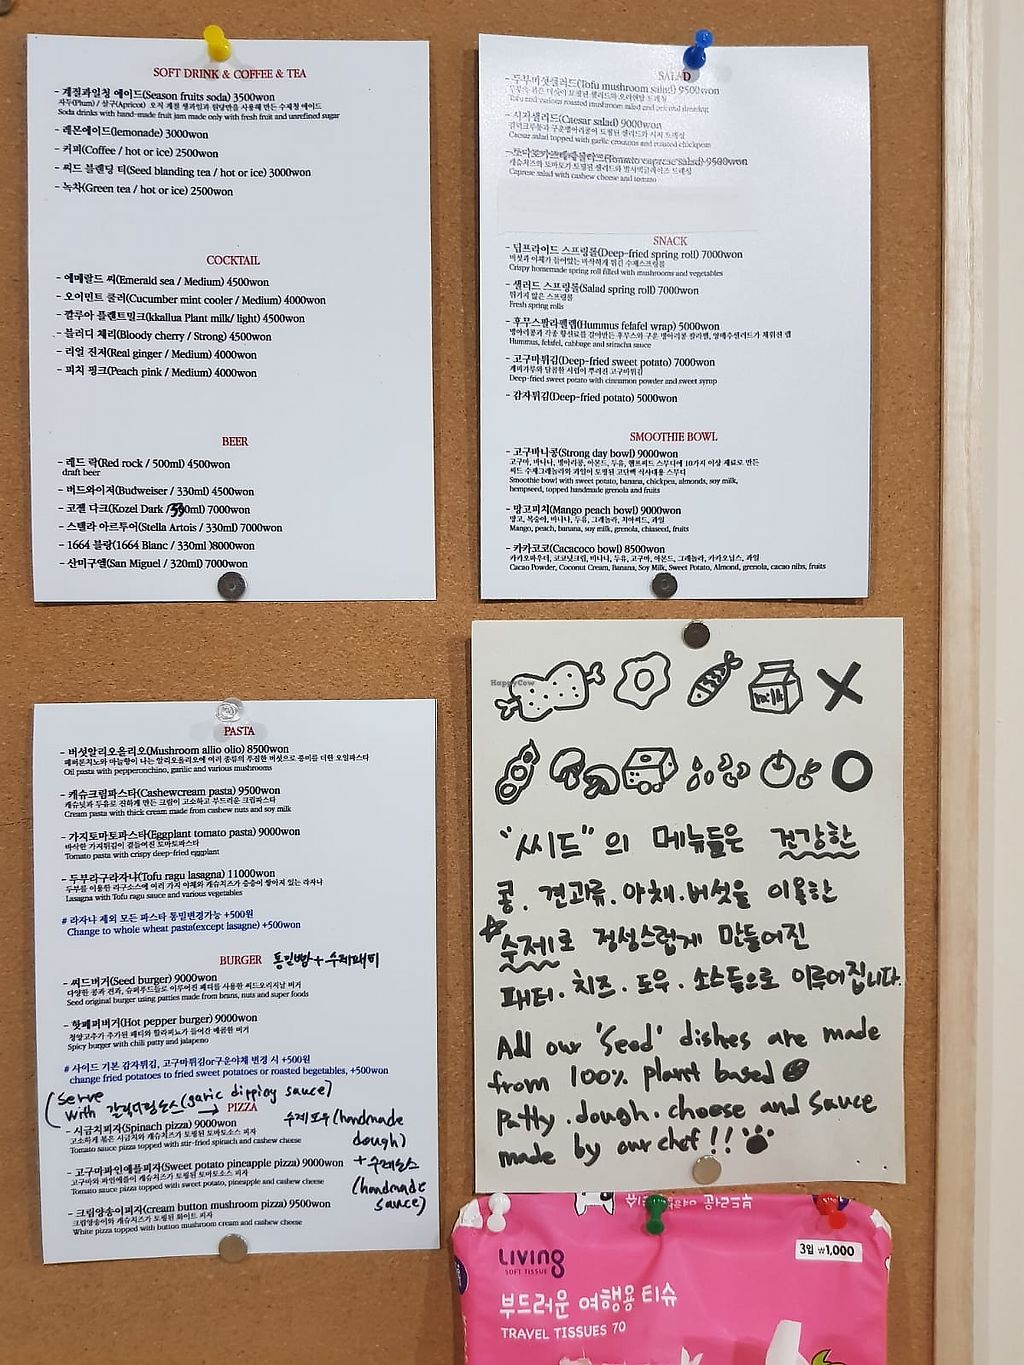 SOFT DRINK & COFFEE & TEA
- 계절과일청 에이드(Season fruits soda) 3500won
자두(Plum) / 살구(Apricot) 오직 계절 생과일과 원당만을 사용해 만든 수제청 에이드
Soda drinks with hand-made fruit jam made only with fresh fruit and unrefined sugar
- 레몬에이드(lemonade) 3000won
- 커피(Coffee / hot or ice) 2500won
- 씨드 블렌딩 티(Seed blanding tea / hot or ice) 3000won
- 녹차(Green tea / hot or ice) 2500won
COCKTAIL
- 에메랄드 씨(Emerald sea / Medium) 4500won
- 오이민트 쿨러(Cucumber mint cooler / Medium) 4000won
- 깔루아 플랜트밀크(kkallua Plant milk/ light) 4500won
- 블러디 체리(Bloody cherry / Strong) 4500won
- 리얼 진저(Real ginger / Medium) 4000won
- 피치 핑크(Peach pink / Medium) 4000won
BEER
- 레드 락(Red rock / 500ml) 4500won
draft beer
- 버드와이저(Budweiser / 330ml) 4500won
- 코젤 다크(Kozel Dark /330ml) 7000won
- 스텔라 아르투어(Stella Artois / 330ml) 7000won
- 1664 블랑(1664 Blanc / 330ml )8000won
- 산미구엘(San Miguel / 320ml) 7000won
SALAD
- 두부버섯샐러드(Tofu mushroom salad) 9500won
Tofu and various roasted mushroom salad and oriental dressing
- 시저샐러드(Caesar salad) 9000won
갈릭크루통과 구운병아리콩이 토핑된 샐러드와 시저 드레싱
Caesar salad topped with garlic croutons and roasted chickpeas
- 토마토카프레제샐러드(Tomato caprese salad) 9500won
캐슈치즈와 토마토가 토핑된 샐러드와 발사믹글레이즈 드레싱
Caprese salad with cashew cheese and tomato
SNACK
- 딥프라이드 스프링롤(Deep-fried spring roll) 7000won
버섯과 야채가 들어있는 바삭하게 튀긴 수제스프링롤
Crispy homemade spring roll filled with mushrooms and vegetables
- 샐러드 스프링롤(Salad spring roll) 7000won
튀기지 않은 스프링롤
Fresh spring rolls
- 후무스팔라펠랩(Hummus felafel wrap) 5000won
병아리콩과 각종 향신료를 갈아만든 후무스와 구운 병아리콩 팔라펠, 양배추샐러드가 채워진 랩
Hummus, felafel, cabbage and sriracha sauce
- 고구마튀김(Deep-fried sweet potato) 7000won
계피가루와 달콤한 시럽이 뿌려진 고구마튀김
Deep-fried sweet potato with cinnamon powder and sweet syrup
- 감자튀김(Deep-fried potato) 5000won
SMOOTHIE BOWL
- 고구바나콩(Strong day bowl) 9000won
고구마, 바나나, 병아리콩, 아몬드, 두유, 햄프씨드 스무디에 10가지 이상 재료로 만든
씨드 수제그래놀라와 과일이 토핑된 고단백 식사대용 스무디
Smoothie bowl with sweet potato, banana, chickpea, almonds, soy milk,
hempseed, topped handmade grenola and fruits
- 망고피치(Mango peach bowl) 9000won
망고, 복숭아, 바나나, 두유, 그래놀라, 치아씨드, 과일
Mango, peach, banana, soy milk, grenola, chiaseed, fruits
- 카카코코(Cacacoco bowl) 8500won
카카오파우더, 코코넛크림, 바나나, 두유, 고구마, 아몬드, 그래놀라, 카카오닙스, 과일
Cacao Powder, Coconut Cream, Banana, Soy Milk, Sweet Potato, Almond, grenola, cacao nibs, fruits
PASTA
- 버섯알리오올리오(Mushroom allio olio) 8500won
페퍼론치노와 마늘향이 나는 알리오올리오에 여러 종류의 푸짐한 버섯으로 풍미를 더한 오일파스타
Oil pasta with pepperonchino, garlic and various mushrooms
- 캐슈크림파스타(Cashewcream pasta) 9500won
캐슈넛과 두유로 진하게 만든 크림이 고소하고 부드러운 크림파스타
Cream pasta with thick cream made from cashew nuts and soy milk
- 가지토마토파스타(Eggplant tomato pasta) 9000won
바삭한 가지튀김이 곁들여진 토마토파스타
Tomato pasta with crispy deep-fried eggplant
- 두부라구라자냐(Tofu ragu lasagna) 11000won
두부를 이용한 라구소스에 여러 가지 야채와 캐슈치즈가 층층이 쌓아져 있는 라자냐
Lasagna with Tofu ragu sauce and various vegetables
# 라자냐 제외 모든 파스타 통밀변경가능 +500원
Change to whole wheat pasta(except lasagne) +500won
BURGER 통밀빵+수제패티
- 씨드버거(Seed burger) 9000won
다양한 콩과 견과, 슈퍼푸드들로 이루어진 패티를 사용한 씨드오리지날 버거
Seed original burger using patties made from brans, nuts and super foods
- 핫페퍼버거(Hot pepper burger) 9000won
청양고추가 추가된 패티와 할라피뇨가 들어간 매콤한 버거
Spicy burger with chili patty and jalapeno
# 사이드 기본 감자튀김, 고구마튀김or구운야채 변경 시 +500원
change fried potatoes to fried sweet potatoes or roasted begetables, +500won
(serve with 갈릭디핑소스(garic dipping sauce)
PIZZA
→ 수제도우(handmade dough)
+수제소스(handmade sauce)
- 시금치피자(Spinach pizza) 9000won
고소하게 볶은 시금치와 캐슈치즈가 토핑된 토마토소스 피자
Tomato sauce pizza topped with stir-fried spinach and cashew cheese
- 고구마파인애플피자(Sweet potato pineapple pizza) 9000won
고구마와 파인애플이 캐슈치즈가 토핑된 토마토소스 피자
Tomato sauce pizza topped with sweet potato, pineapple and cashew cheese
- 크림양송이피자(cream button mushroom pizza) 9500won
크림양송이와 캐슈치즈가 토핑된 화이트 피자
White pizza topped with button mushroom cream and cashew cheese
HappyCow
milk
"씨드"의 메뉴들은 건강한
콩. 견과류. 야채. 버섯을 이용한
☆수제로 정성스럽게 만들어진
패티. 치즈. 도우. 소스들로 이루어집니다.
All our 'Seed' dishes are made
from 100% plant based
Patty. dough. cheese and sauce
made by our chef!!
부드러운 여행용
LIVING
SOFT TISSUE
3입 ₩1,000
부드러운 여행용 티슈
TRAVEL TISSUES 70